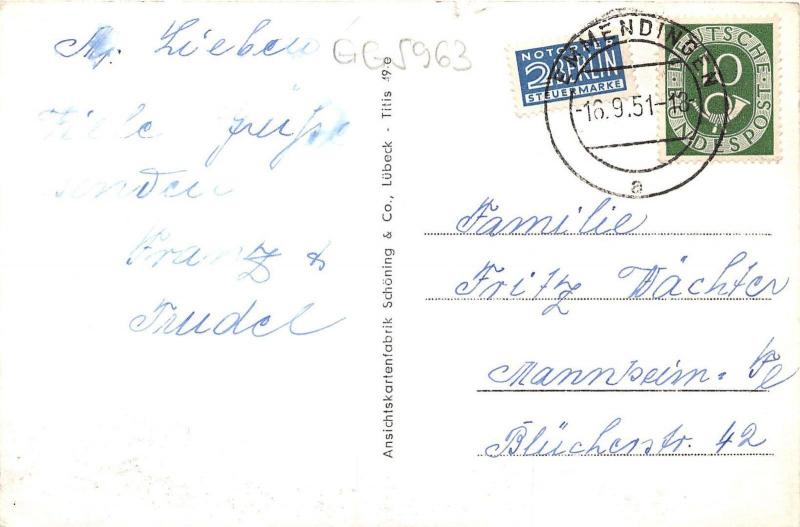 GG5963
Viele Grüße
senden
Franz &
Trudel
Ansichtskartenfabrik Schöning & Co., Lübeck - Titis 49 e
NOTOPFER
2 BERLIN
STEUERMARKE
EMMENDINGEN
-16.9.51-18
a
DEUTSCHE
10
BUNDESPOST
Familie
Fritz Wächter
Mannheim - Fe
Blücherstr. 42